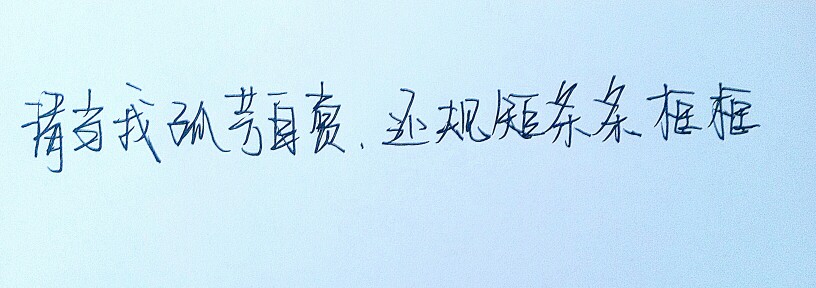 请当我孤芳自赏、还规矩条条框框